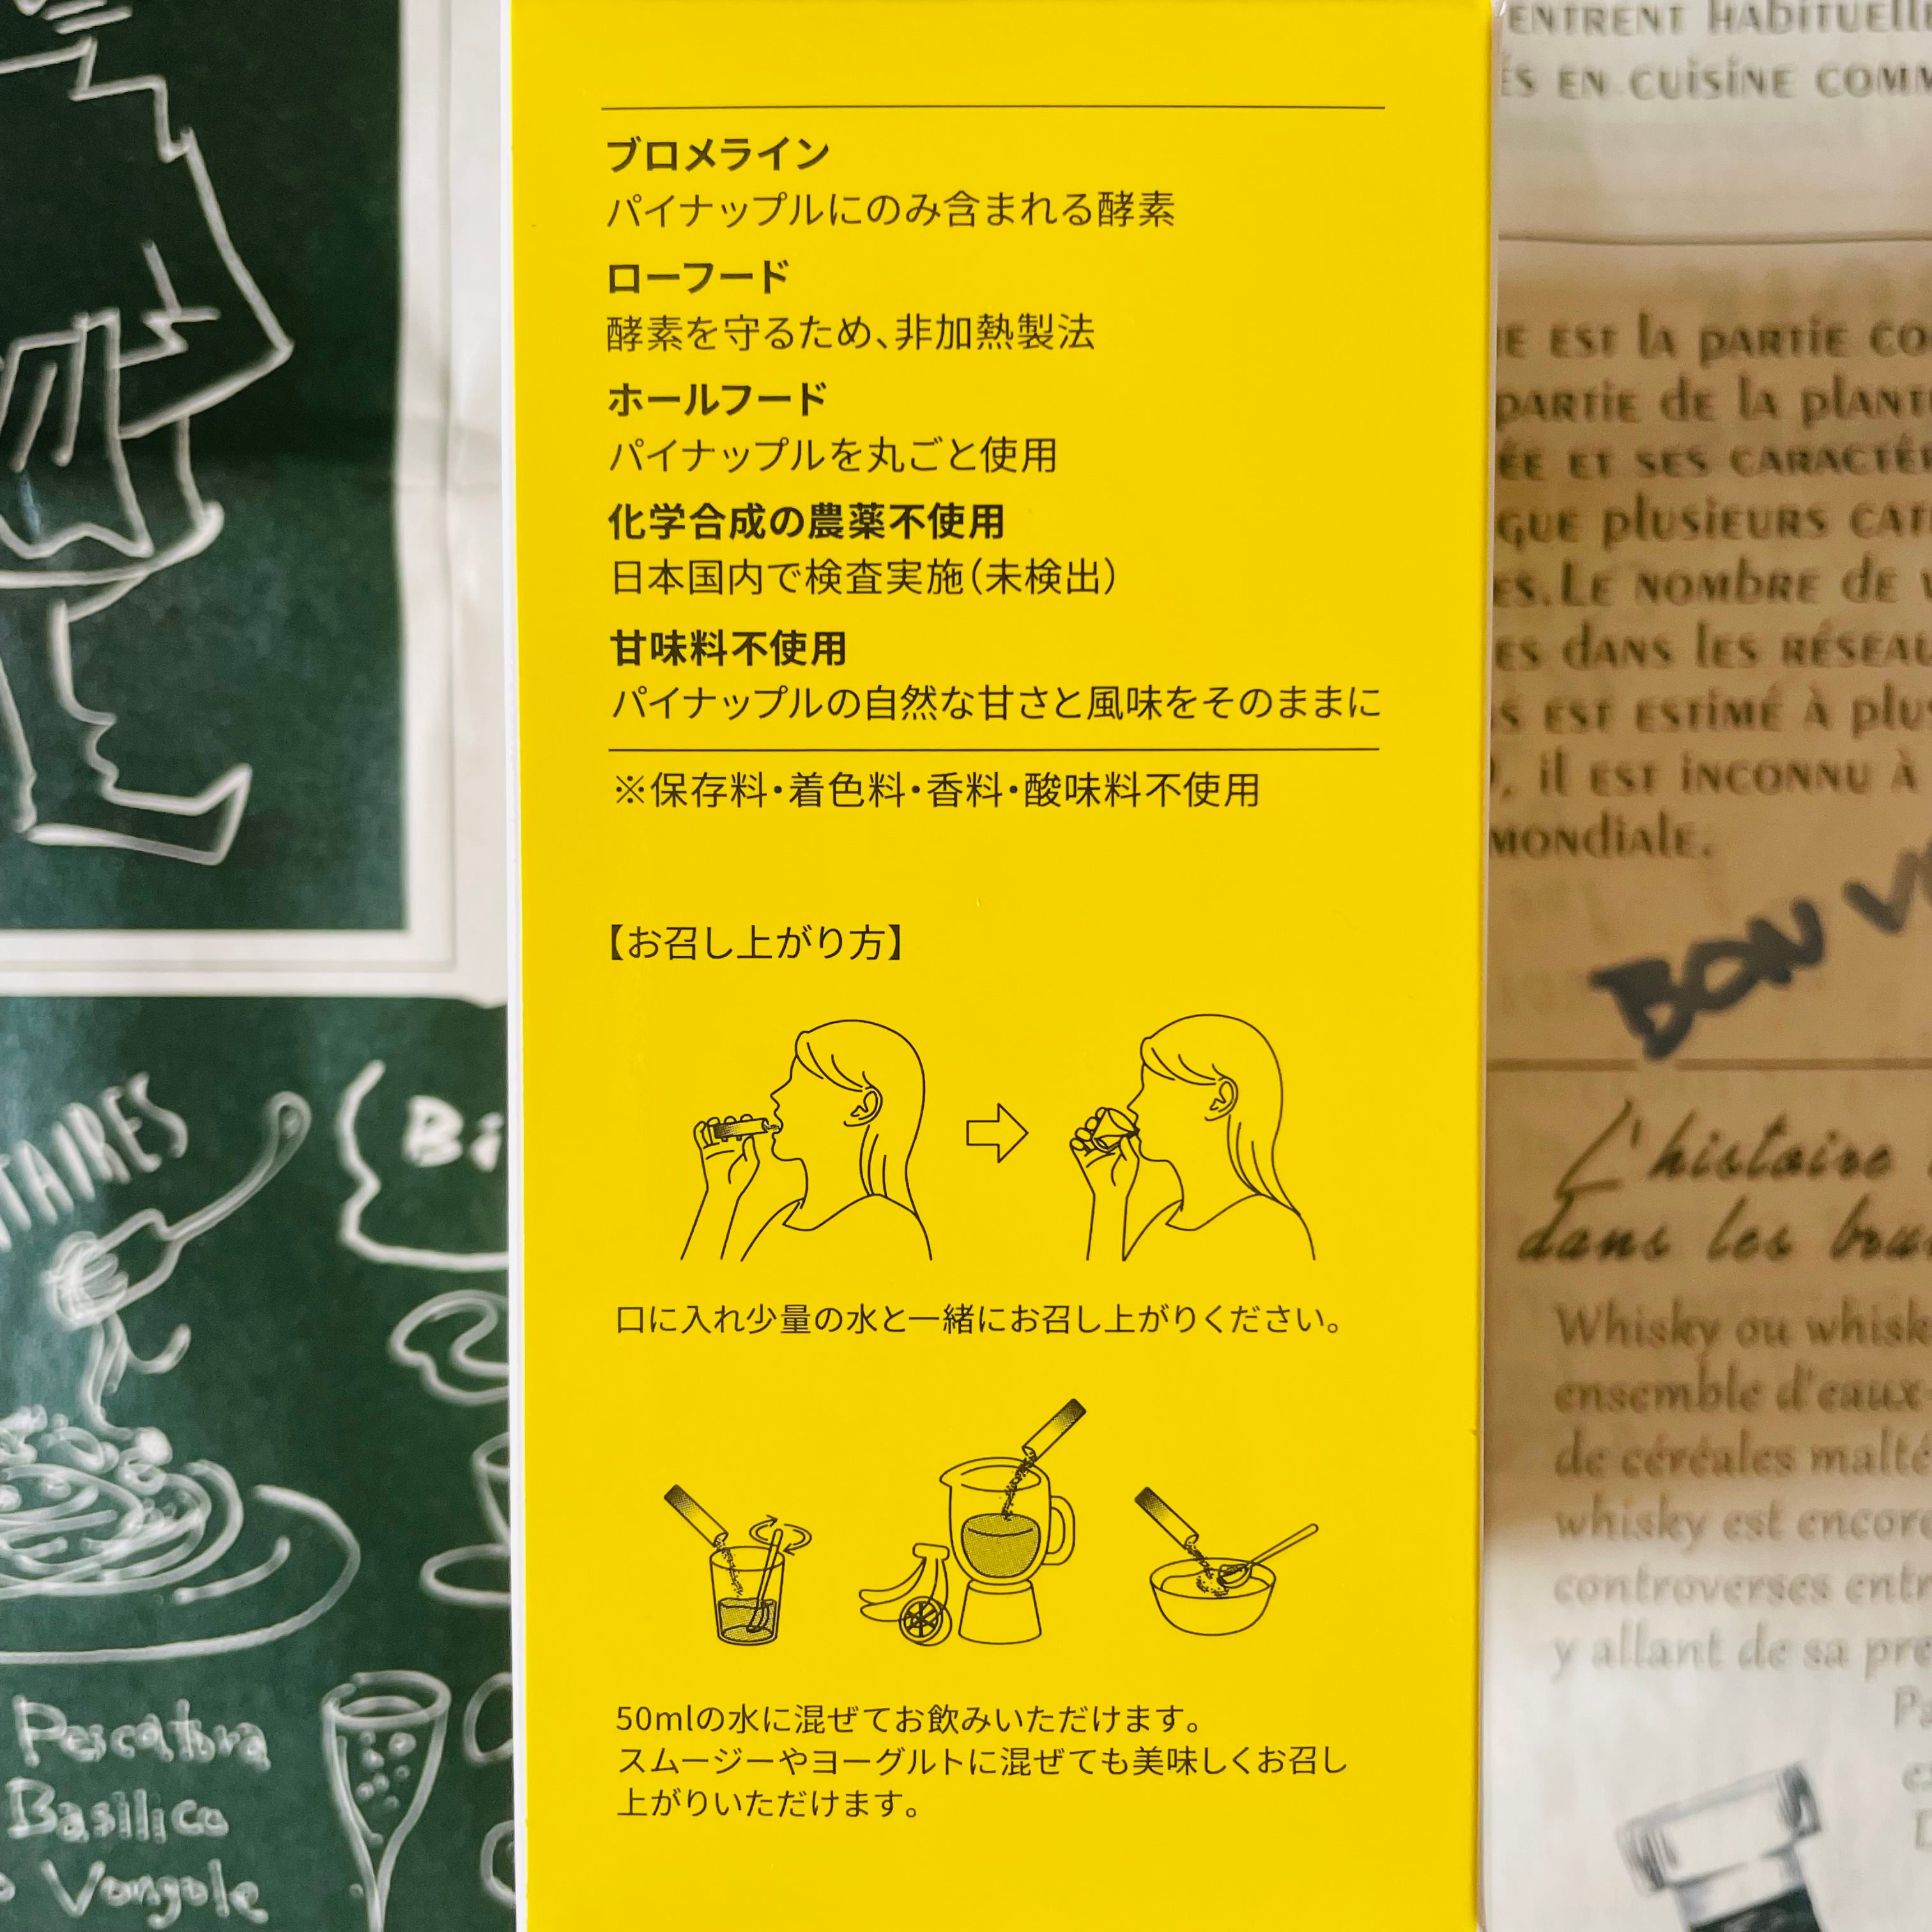 ブロメライン
パイナップルにのみ含まれる酵素
ローフード
酵素を守るため、非加熱製法
ホールフード
パイナップルを丸ごと使用
化学合成の農薬不使用
日本国内で検査実施（未検出）
甘味料不使用
パイナップルの自然な甘さと風味をそのままに
※保存料・着色料・香料・酸味料不使用
【お召し上がり方】
口に入れ少量の水と一緒にお召し上がりください。
50mlの水に混ぜてお飲みいただけます。
スムージーやヨーグルトに混ぜても美味しくお召し
上がりいただけます。
TAIRES
Bi
Pescatora
Basilico
Vongole
ENTRENT HABITUELL
EN CUISINE COMM
EST LA PARTIE CO
PARTIE DE LA PLANT
ÉE ET SES CARACTÉR
QUE PLUSIEURS CAR
ES. LE NOMBRE DE
ES DANS LES RÉSEAU
S EST ESTIMÉ À PLUS
, IL EST INCONNU À
MONDIALE.
BON
L'histoire
dans les bru
Whisky ou whisk
ensemble d'eaux
de céréales malté
whisky est encore
controverses entr
y allant de sa pre